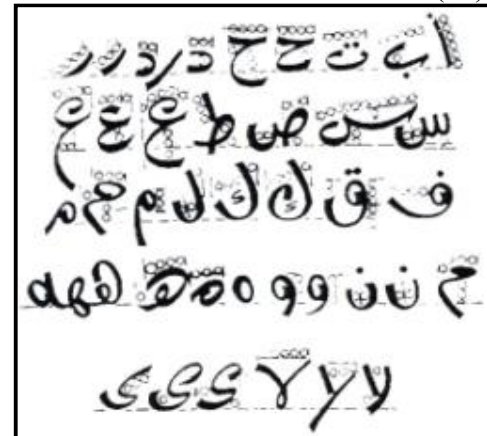 أ ب ت ح ح د ر د ر ر
س س ص ط ع ع ع
ف ق ك ك ل ل م م م
م ن ن و و ه ه ه ه ه
لا لا لا ى ى ى